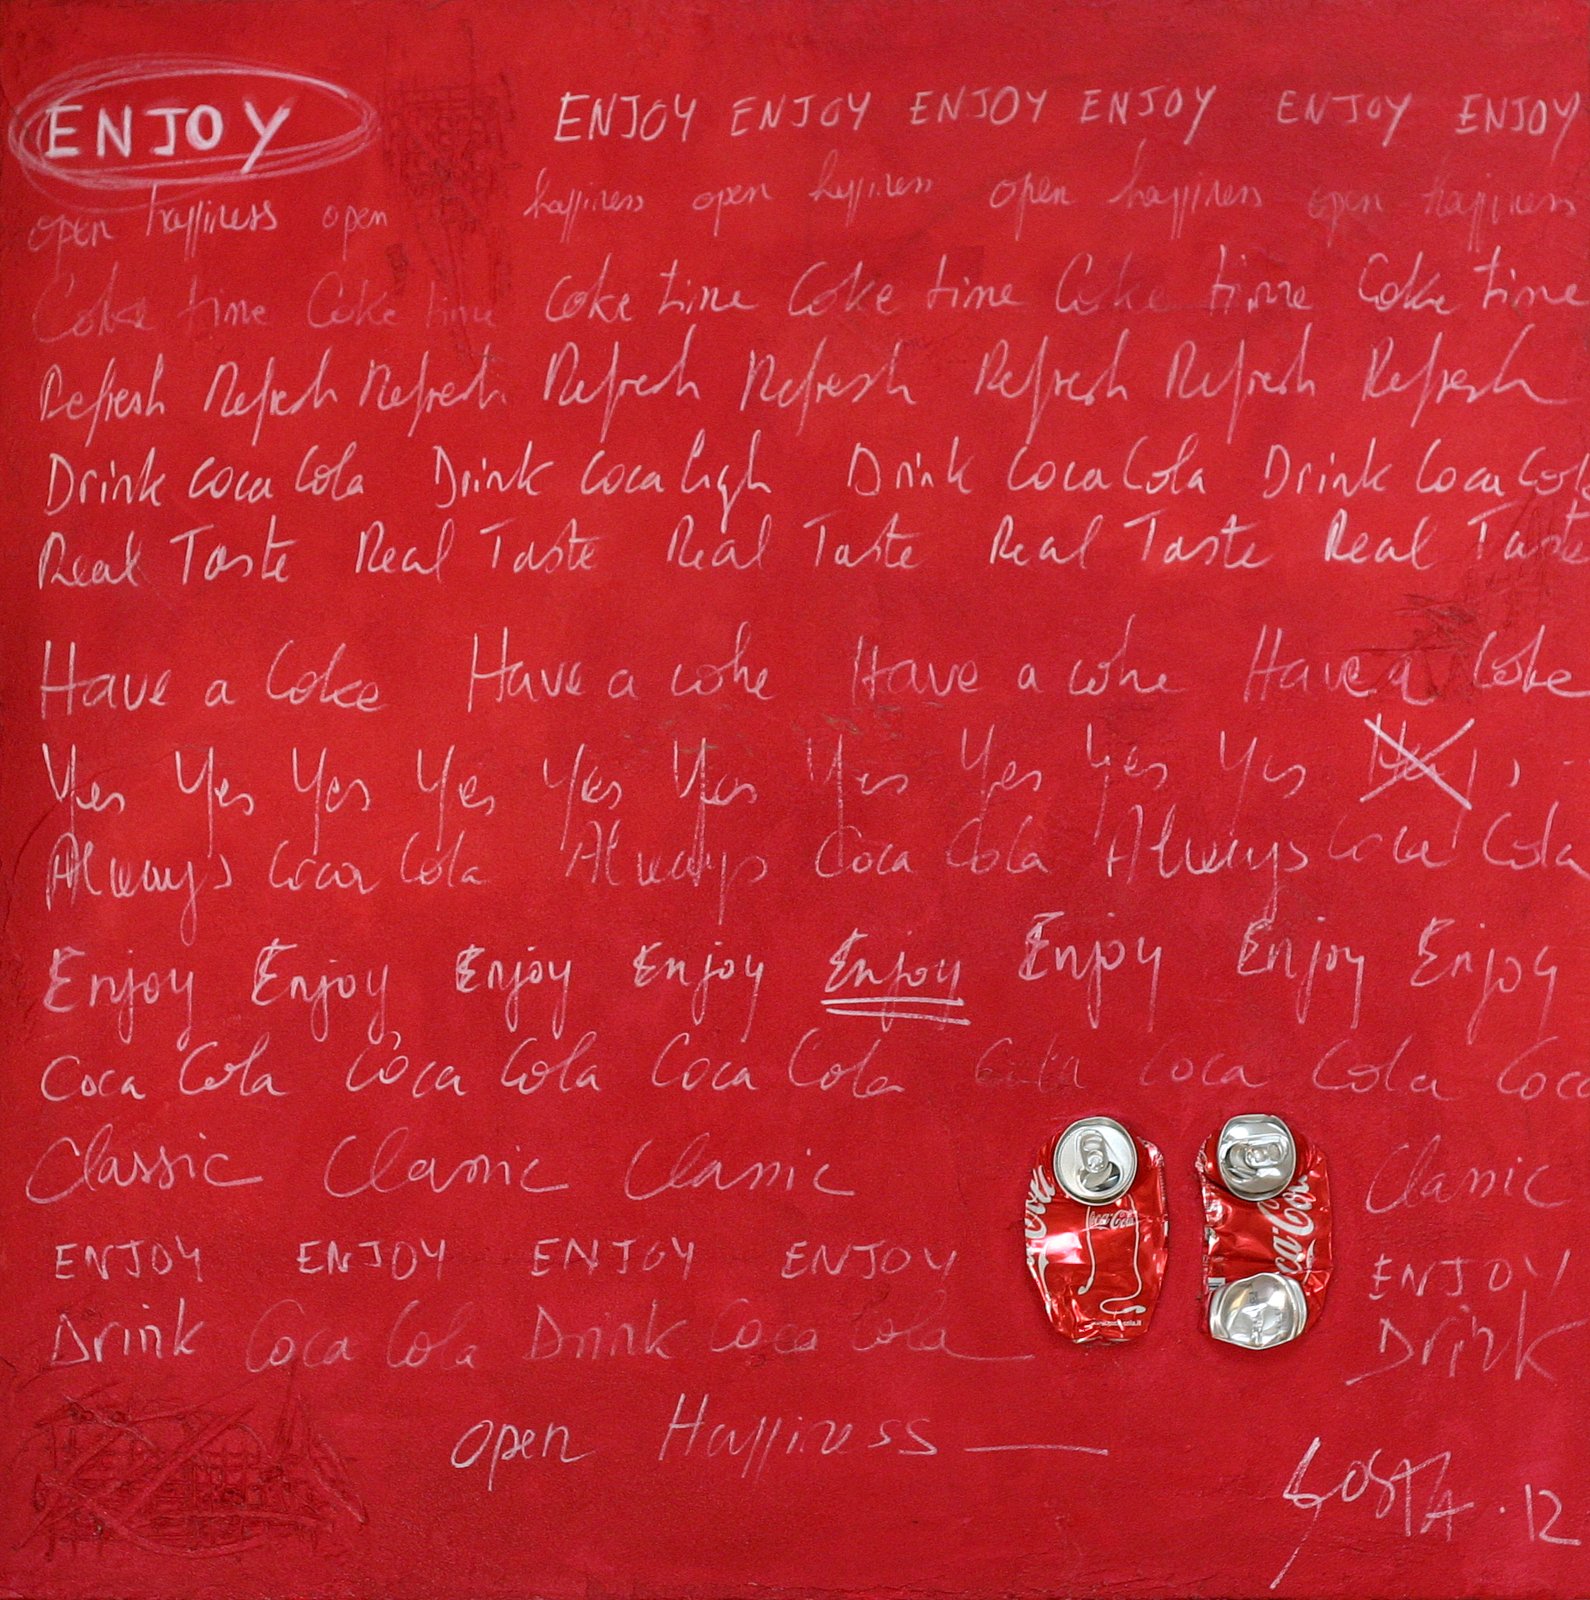 ENJOY ENJOY ENJOY ENJOY ENJOY ENJOY ENJOY
open happiness open happiness open happiness open happiness open happiness
Coke time Coke time Coke time Coke time Coke time Coke time
Refresh Refresh Refresh Refresh Refresh Refresh Refresh Refresh
Drink Coca Cola Drink Coca Drink Coca Cola Drink Coca Cola
Real Taste Real Taste Real Taste Real Taste Real Taste
Have a Coke Have a coke Have a coke Have a Coke
Yes Yes Yes Yes Yes Yes Yes Yes Yes Yes
Always Coca Cola Always Coca Cola Always Coca Cola
Enjoy Enjoy Enjoy Enjoy Enjoy Enjoy Enjoy Enjoy
Coca Cola Coca Cola Coca Cola Cola Coca Cola Coca
Classic Classic Classic Classic
Coca-Cola
ENJOY ENJOY ENJOY ENJOY ENJOY
Drink Coca Cola Drink Coca Cola Drink
open Happiness
COSTA . 12